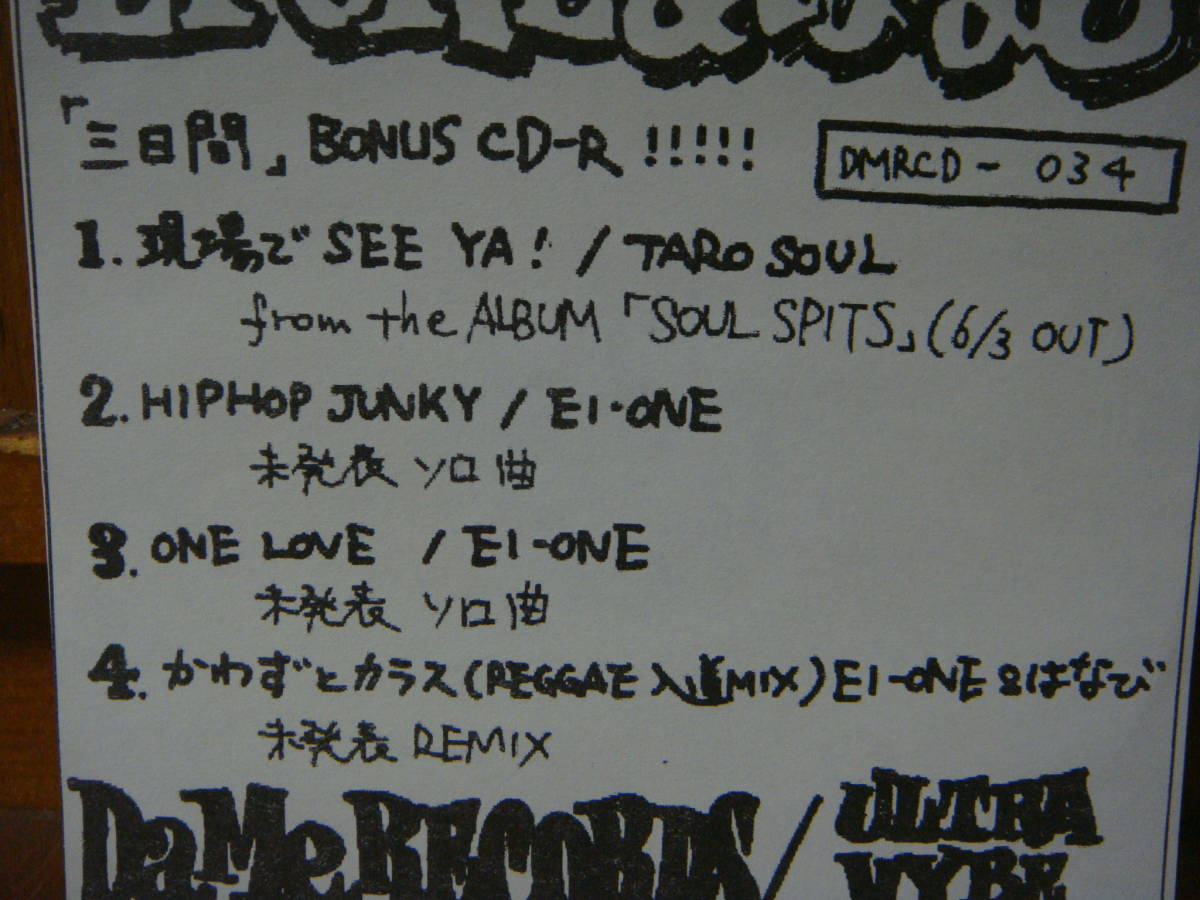 「三日間」BONUS CD-R !!!!!
DMRCD- 034
1. 現場で SEE YA! / TARO SOUL
from the ALBUM「SOUL SPITS」(6/3 OUT)
2. HIPHOP JUNKY / EI-ONE
未発表 ソロ曲
3. ONE LOVE / EI-ONE
未発表 ソロ曲
4. かわずとカラス(REGGAE 入道MIX) EI-ONE &はなび
未発表 REMIX
Da.Me.RECORDS / ULTRA
VYBE